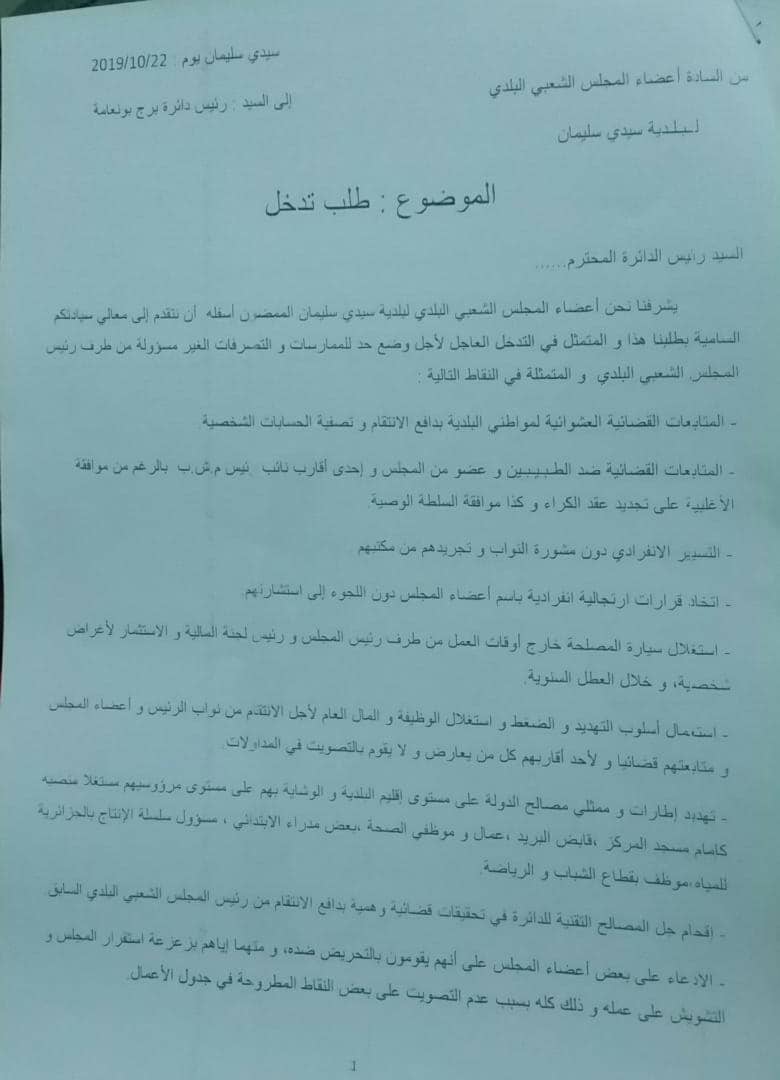 سيدي سليمان يوم : 2019/10/22
من السادة أعضاء المجلس الشعبي البلدي
إلى السيد : رئيس دائرة برج بونعامة
لـبـلـدية سيدي سليمان
الموضوع : طلب تدخل
السيد رئيس الدائرة المحترم......
يشرفنا نحن أعضاء المجلس الشعبي البلدي لبلدية سيدي سليمان الممضون أسفله أن نتقدم إلى معالي سيادتكم
السامية بطلبنا هذا و المتمثل في التدخل العاجل لأجل وضع حد للممارسات و التصرفات الغير مسؤولة من طرف رئيس
المجلس الشعبي البلدي و المتمثلة في النقاط التالية :
- المتابعات القضائية العشوائية لمواطني البلدية بدافع الانتقام و تصفية الحسابات الشخصية.
- المتابعات القضائية ضد الطبـيـبـين و عضو من المجلس و إحدى أقارب نائب رئيس م.ش.ب بالرغم من موافقة
الأغلبية على تجديد عقد الكراء و كذا موافقة السلطة الوصية.
- التسيير الانفرادي دون مشورة النواب و تجريدهم من مكتبهم
- اتخاد قرارات ارتجالية انفرادية باسم أعضاء المجلس دون اللجوء إلى استشارتهم.
- استغلال سيارة المصلحة خارج أوقات العمل من طرف رئيس المجلس و رئيس لجنة المالية و الاستثمار لأغراض
شخصية، و خلال العطل السنوية.
- استعمال أسلوب التهديد و الضغط و استغلال الوظيفة و المال العام لأجل الانتقام من نواب الرئيس و أعضاء المجلس
و متابعتهم قضائيا و لأحد أقاربهم كل من يعارض و لا يقوم بالتصويت في المداولات.
- تهديد إطارات و ممثلي مصالح الدولة على مستوى إقليم البلدية و الوشاية بهم على مستوى مرؤوسيهم مستغلا منصبه
كامام مسجد المركز ،قابض البريد ،عمال و موظفي الصحة ،بعض مدراء الابتدائي ، مسؤول سلسلة الإنتاج بالجزائرية
للمياه،موظف بقطاع الشباب و الرياضة.
- اقحام جل المصالح التقنية للدائرة في تحقيقات قضائية وهمية بدافع الانتقام من رئيس المجلس الشعبي البلدي السابق.
- الادعاء على بعض أعضاء المجلس على أنهم يقومون بالتحريض ضده، و متهما إياهم بزعزعة استقرار المجلس و
التشويش على عمله و ذلك كله بسبب عدم التصويت على بعض النقاط المطروحة في جدول الأعمال.
1